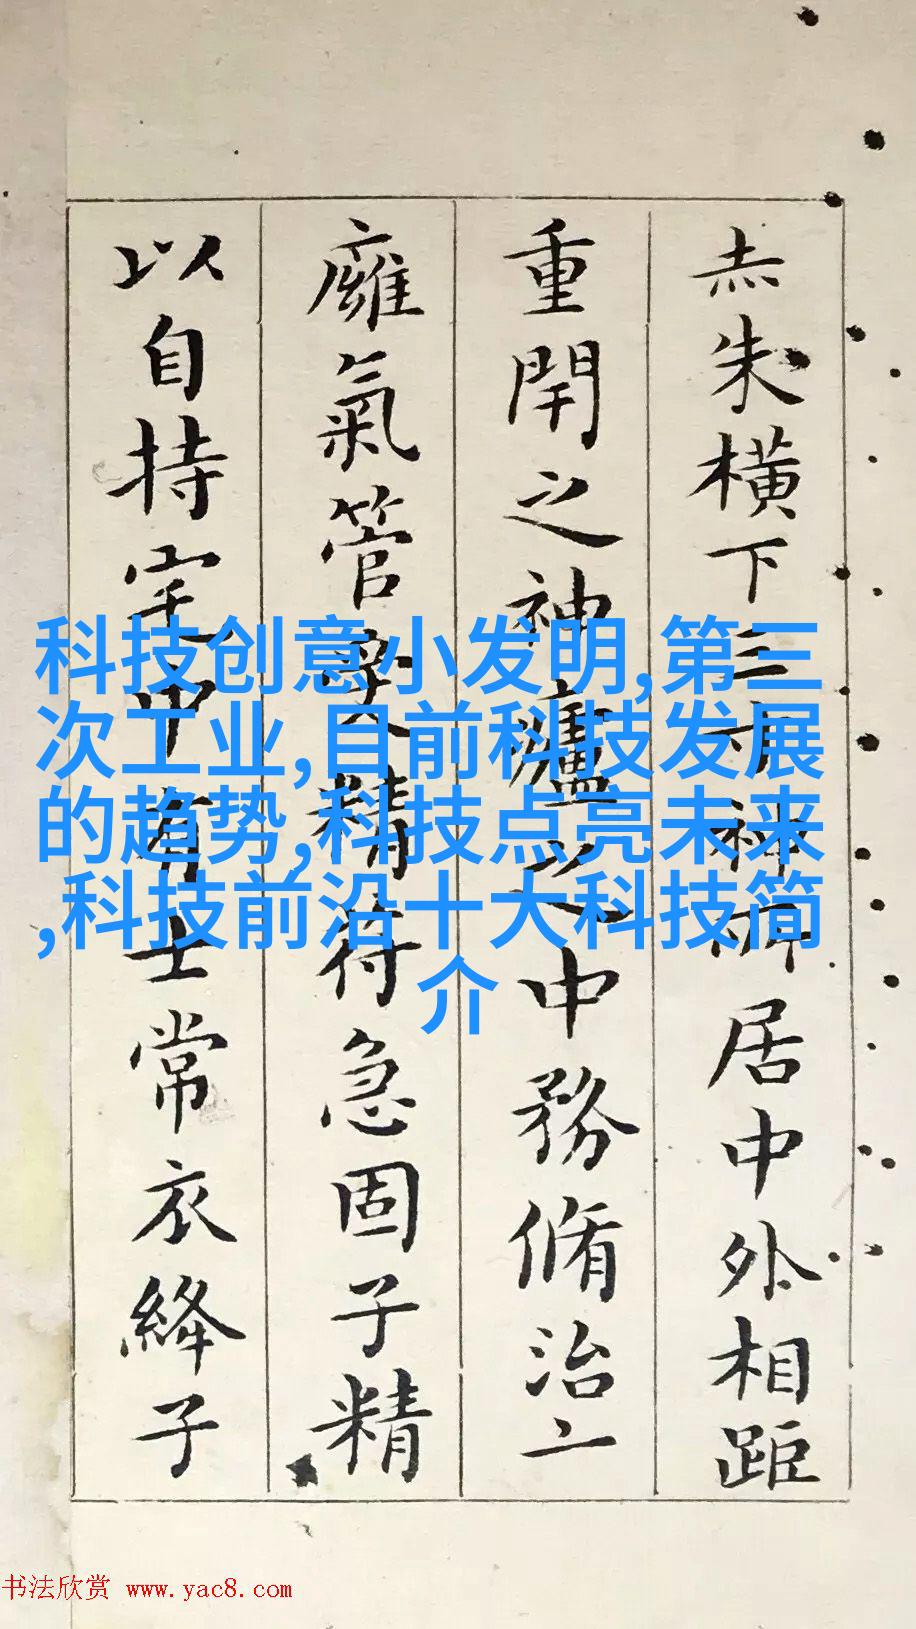 赤朱橫下三寸神所居中外相距
重閈之神廬之中務脩治
廱氣管受精符急固子精
以自持宅中有士常衣絳子
科技创意小发明,第三
次工业,目前科技发展
的趋势,科技点亮未来
,科技前沿十大科技简
介
书法欣赏 www.yac8.com